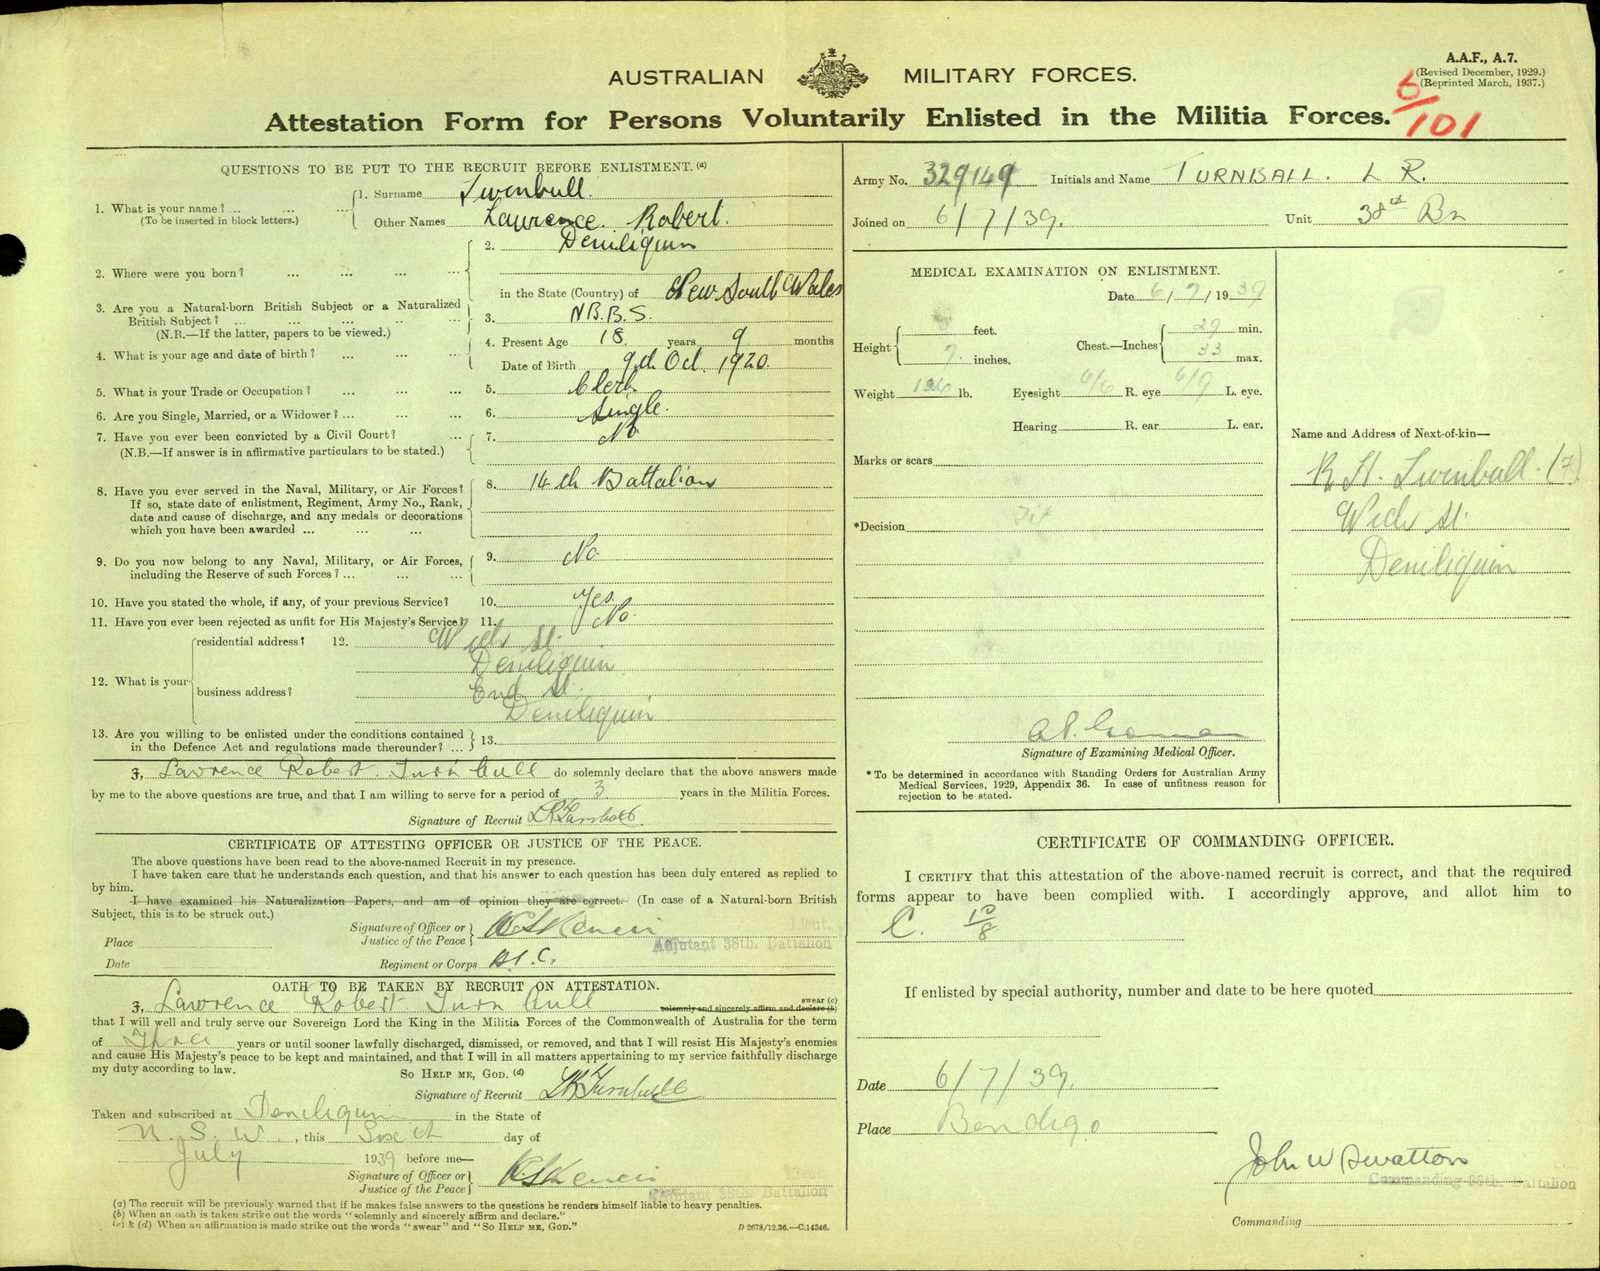 AUSTRALIAN MILITARY FORCES.
A.A.F., A.7.
(Revised December, 1929.)
(Reprinted March, 1937.)
6/101
Attestation Form for Persons Voluntarily Enlisted in the Militia Forces.
QUESTIONS TO BE PUT TO THE RECRUIT BEFORE ENLISTMENT.(a)
1. What is your name? .. ... ...
(To be inserted in block letters.)
1. Surname Turnbull.
Other Names Lawrence Robert.
2. Where were you born? ... ... ... ...
2. Deniliquin
in the State (Country) of New South Wales
3. Are you a Natural-born British Subject or a Naturalized
British Subject? ... ... ... ... ...
(N.B.—If the latter, papers to be viewed.)
3. N.B.B.S.
4. What is your age and date of birth? ... ... ...
4. Present Age 18 years 9 months
Date of Birth 9th Oct. 1920.
5. What is your Trade or Occupation? ... ... ...
5. Clerk
6. Are you Single, Married, or a Widower? ... ... ...
6. Single.
7. Have you ever been convicted by a Civil Court? ...
(N.B.—If answer is in affirmative particulars to be stated.)
7. No
8. Have you ever served in the Naval, Military, or Air Forces?
If so, state date of enlistment, Regiment, Army No., Rank,
date and cause of discharge, and any medals or decorations
which you have been awarded ... ... ...
8. 14th Battalion
9. Do you now belong to any Naval, Military, or Air Forces,
including the Reserve of such Forces? ... ... ...
9. No.
10. Have you stated the whole, if any, of your previous Service? 10. Yes.
11. Have you ever been rejected as unfit for His Majesty's Service? 11. No.
12. What is your
residential address? 12.
Deniliquin
business address?
End St.
Deniliquin
13. Are you willing to be enlisted under the conditions contained
in the Defence Act and regulations made thereunder? ... 13.
I, Lawrence Robert Turnbull do solemnly declare that the above answers made
by me to the above questions are true, and that I am willing to serve for a period of 3 years in the Militia Forces.
Signature of Recruit L R Turnbull
CERTIFICATE OF ATTESTING OFFICER OR JUSTICE OF THE PEACE.
The above questions have been read to the above-named Recruit in my presence.
I have taken care that he understands each question, and that his answer to each question has been duly entered as replied to
by him.
I have examined his Naturalization Papers, and am of opinion they are correct. (In case of a Natural-born British
Subject, this is to be struck out.)
Signature of Officer or
Justice of the Peace
Lieut.
Adjutant 38th. Battalion
Place
Date
Regiment or Corps
OATH TO BE TAKEN BY RECRUIT ON ATTESTATION.
I, Lawrence Robert Turnbull swear (c)
solemnly and sincerely affirm and declare (b)
that I will well and truly serve our Sovereign Lord the King in the Militia Forces of the Commonwealth of Australia for the term
of Three years or until sooner lawfully discharged, dismissed, or removed, and that I will resist His Majesty's enemies
and cause His Majesty's peace to be kept and maintained, and that I will in all matters appertaining to my service faithfully discharge
my duty according to law.
SO HELP ME, GOD. (d)
Signature of Recruit L R Turnbull
Taken and subscribed at Deniliquin in the State of
N. S. W. , this Sixth day of
July 1939 before me—
Signature of Officer or
Justice of the Peace
Lieut.
Adjutant 38th. Battalion
(a) The recruit will be previously warned that if he makes false answers to the questions he renders himself liable to heavy penalties.
(b) When an oath is taken strike out the words "solemnly and sincerely affirm and declare."
(c) & (d) When an affirmation is made strike out the words "swear" and "SO HELP ME, GOD."
D 2678/12.36.—C.14346.
Army No. 329149 Initials and Name TURNBALL. L R.
Joined on 6/7/39. Unit 38th Bn
MEDICAL EXAMINATION ON ENLISTMENT.
Date 6/7/1939
Height
feet.
7. inches.
Chest.—Inches
29 min.
33 max.
Weight lb.
Eyesight 6/6 R. eye 6/9 L. eye.
Hearing R. ear L. ear.
Marks or scars
*Decision Fit
Signature of Examining Medical Officer.
* To be determined in accordance with Standing Orders for Australian Army
Medical Services, 1929, Appendix 36. In case of unfitness reason for
rejection to be stated.
Name and Address of Next-of-kin—
R H. Turnbull. (F)
Deniliquin
CERTIFICATE OF COMMANDING OFFICER.
I CERTIFY that this attestation of the above-named recruit is correct, and that the required
forms appear to have been complied with. I accordingly approve, and allot him to
C.
If enlisted by special authority, number and date to be here quoted
Date 6/7/39.
Place Bendigo
John W Swatton
Commanding 38th. Battalion
Commanding